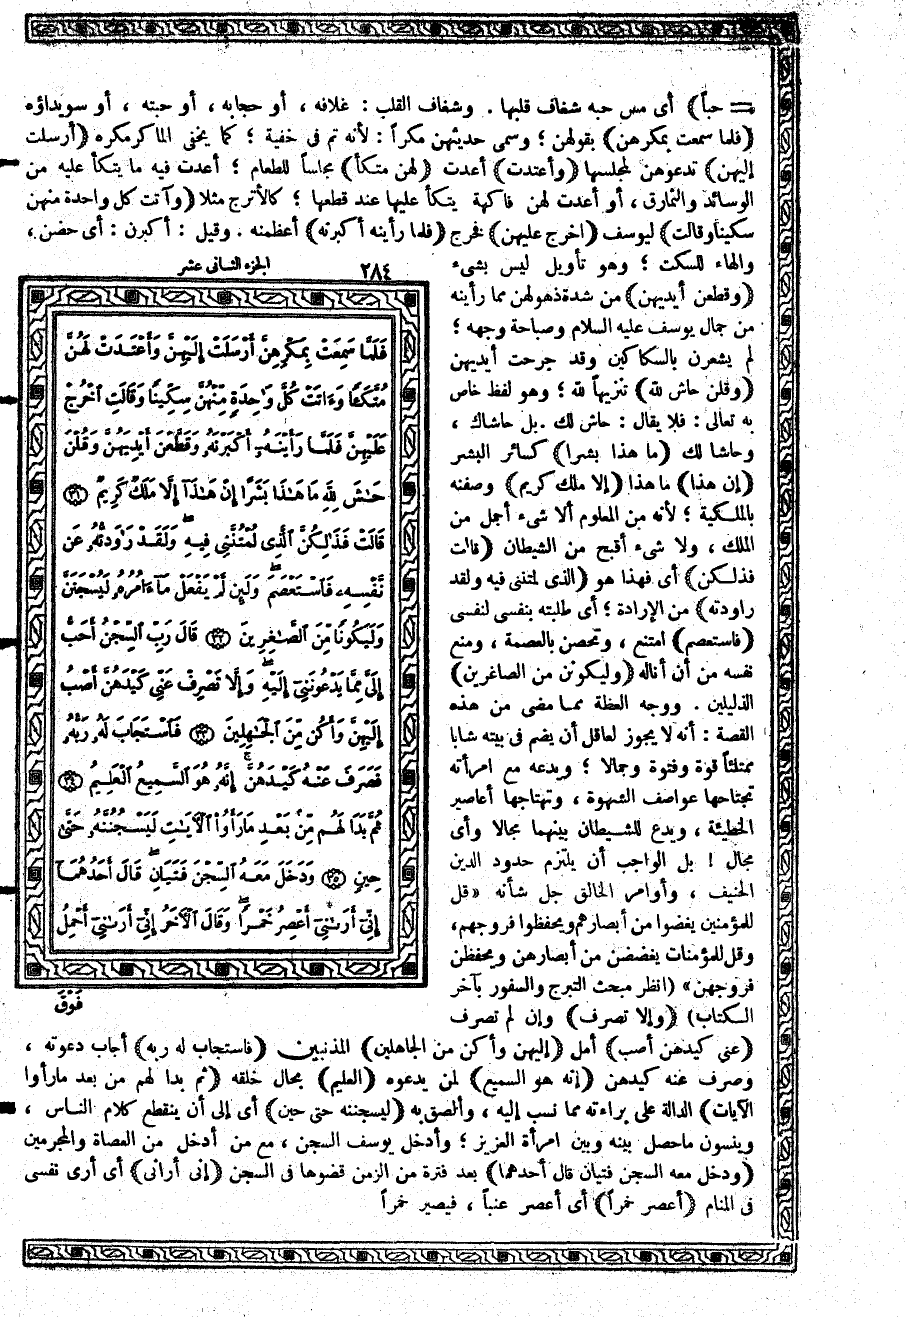 حباً) أى مس حبه شغاف قلبها . وشغاف القلب : غلافه ، أو حجابه ، أو حبته ، أو سويداؤه
(فلما سمعت بمكرهن) بقولهن ؛ وسمى حديثهن مكراً : لأنه تم فى خفية ؛ كما يخفى الماكر مكره (أرسلت
إليهن) تدعوهن لمجلسها (وأعتدت) أعدت (لهن متكأ) مجلساً للطعام ؛ أعدت فيه ما يتكأ عليه من
الوسائد والنمارق ، أو أعدت لهن فاكهة يتكأ عليها عند قطعها ؛ كالأترج مثلا (وآتت كل واحدة منهن
سكيناً وقالت) ليوسف (اخرج عليهن) فخرج (فلما رأينه أكبرنه) أعظمنه . وقيل : أكبرن : أى حضن ،
والهاء للسكت ؛ وهو تأويل ليس بشىء
(وقطعن أيديهن) من شدة ذهولهن مما رأينه
من جمال يوسف عليه السلام وصباحة وجهه ؛
لم يشعرن بالسكاكين وقد جرحت أيديهن
(وقلن حاش لله) تنزيهاً لله ؛ وهو لفظ خاص
به تعالى : فلا يقال : حاش لك . بل حاشاك ،
وحاشا لك (ما هذا بشرا) كسائر البشر
(إن هذا) ما هذا (إلا ملك كريم) وصفنه
بالملكية ؛ لأنه من المعلوم ألا شىء أجل من
الملك ، ولا شىء أقبح من الشيطان (قالت
فذلكن) أى فهذا هو (الذى لمتننى فيه ولقد
راودته) من الإرادة ؛ أى طلبته بنفسى لنفسى
(فاستعصم) امتنع ، وتحصن بالعصمة ، ومنع
نفسه من أن أناله (وليكونن من الصاغرين)
الذليلين . ووجه العظة مما مضى من هذه
القصة : أنه لا يجوز لعاقل أن يضم فى بيته شابا
ممتلئاً قوة وفتوة وجمالا ؛ ويدعه مع امرأته
تجتاحها عواصف الشهوة ، وتهتاجها أعاصير
الخطيئة ، ويدع للشيطان بينهما مجالا وأى
مجال ! بل الواجب أن يلتزم حدود الدين
الحنيف ، وأوامر الخالق جل شأنه «قل
للمؤمنين يغضوا من أبصارهم ويحفظوا فروجهم،
وقل للمؤمنات يغضضن من أبصارهن ويحفظن
فروجهن» (انظر مبحث التبرج والسفور بآخر
الكتاب) (وإلا تصرف) وإن لم تصرف
الجزء الثانى عشر ٢٨٤
فَلَمَّا سَمِعَتْ بِمَكْرِهِنَّ أَرْسَلَتْ إِلَيْهِنَّ وَأَعْتَدَتْ لَهُنَّ
مُتَّكَـًٔا وَءَاتَتْ كُلَّ وَٰحِدَةٍ مِّنْهُنَّ سِكِّينًا وَقَالَتِ ٱخْرُجْ
عَلَيْهِنَّ فَلَمَّا رَأَيْنَهُۥٓ أَكْبَرْنَهُۥ وَقَطَّعْنَ أَيْدِيَهُنَّ وَقُلْنَ
حَـٰشَ لِلَّهِ مَا هَـٰذَا بَشَرًا إِنْ هَـٰذَآ إِلَّا مَلَكٌ كَرِيمٌ ٣١
قَالَتْ فَذَٰلِكُنَّ ٱلَّذِى لُمْتُنَّنِى فِيهِ ۖ وَلَقَدْ رَٰوَدتُّهُۥ عَن
نَّفْسِهِۦ فَٱسْتَعْصَمَ ۖ وَلَئِن لَّمْ يَفْعَلْ مَآ ءَامُرُهُۥ لَيُسْجَنَنَّ
وَلَيَكُونًا مِّنَ ٱلصَّـٰغِرِينَ ٣٢ قَالَ رَبِّ ٱلسِّجْنُ أَحَبُّ
إِلَىَّ مِمَّا يَدْعُونَنِىٓ إِلَيْهِ ۖ وَإِلَّا تَصْرِفْ عَنِّى كَيْدَهُنَّ أَصْبُ
إِلَيْهِنَّ وَأَكُن مِّنَ ٱلْجَـٰهِلِينَ ٣٣ فَٱسْتَجَابَ لَهُۥ رَبُّهُۥ
فَصَرَفَ عَنْهُ كَيْدَهُنَّ ۚ إِنَّهُۥ هُوَ ٱلسَّمِيعُ ٱلْعَلِيمُ ٣٤
ثُمَّ بَدَا لَهُم مِّنۢ بَعْدِ مَا رَأَوُا۟ ٱلْـَٔايَـٰتِ لَيَسْجُنُنَّهُۥ حَتَّىٰ
حِينٍ ٣٥ وَدَخَلَ مَعَهُ ٱلسِّجْنَ فَتَيَانِ ۖ قَالَ أَحَدُهُمَآ
إِنِّىٓ أَرَىٰنِىٓ أَعْصِرُ خَمْرًا ۖ وَقَالَ ٱلْـَٔاخَرُ إِنِّىٓ أَرَىٰنِىٓ أَحْمِلُ
فَوْقَ
(عنى كيدهن أصب) أمل (إليهن وأكن من الجاهلين) المذنبين (فاستجاب له ربه) أجاب دعوته ،
وصرف عنه كيدهن (إنه هو السميع) لمن يدعوه (العليم) بحال خلقه (ثم بدا لهم من بعد ما رأوا
الآيات) الدالة على براءته مما نسب إليه ، وألصق به (ليسجننه حتى حين) أى إلى أن ينقطع كلام الناس ،
وينسون ما حصل بينه وبين امرأة العزيز ؛ وأدخل يوسف السجن ، مع من أدخل من العصاة والمجرمين
(ودخل معه السجن فتيان قال أحدهما) بعد فترة من الزمن قضوها فى السجن (إنى أرانى) أى أرى نفسى
فى المنام (أعصر خمراً) أى أعصر عنباً ، فيصير خمراً